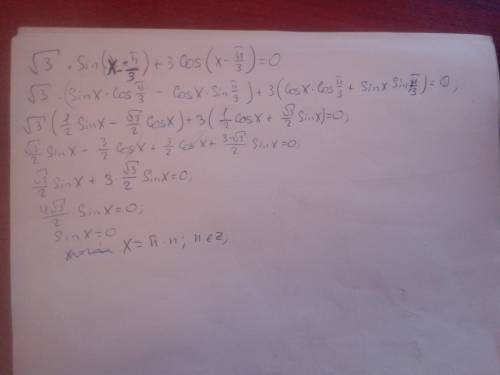 √3 · Sin(x - π/3) + 3 Cos(x - π/3) = 0
√3 · (Sinx · Cos π/3 - Cosx · Sin π/3) + 3(Cosx · Cos π/3 + Sinx Sin π/3) = 0;
√3 (1/2 Sinx - √3/2 Cosx) + 3(1/2 Cosx + √3/2 Sinx) = 0;
√3/2 Sinx - 3/2 Cosx + 3/2 Cosx + 3·√3/2 Sinx = 0;
√3/2 Sinx + 3·√3/2 Sinx = 0;
4√3/2 · Sinx = 0;
Sinx = 0
x = π · n; n ∈ z;